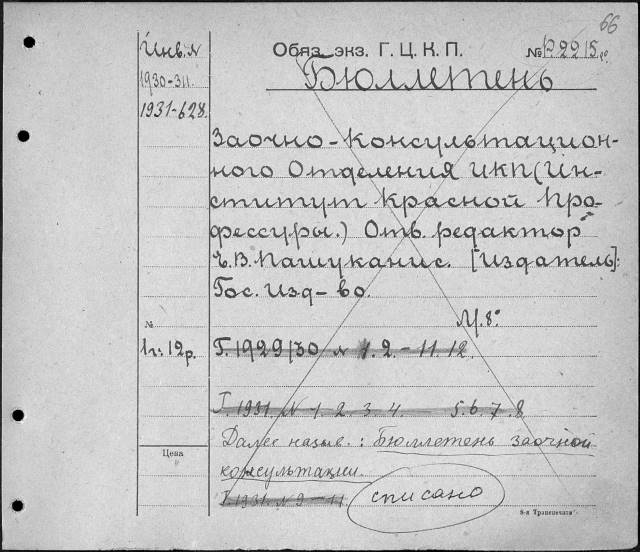 66
Инв. №
1930-311.
1931-628.
Обяз. экз. Г. Ц. К. П.
№ Р2215
Бюллетень
Заочно-Консультацион-
ного Отделения ИКП (Ин-
ститут Красной Про-
фессуры.) Отв. редактор
Е.В. Пашуканис. [Издатель]:
Гос. Изд-во.
М. 8°
№
1 г: 12 р.
Г. 1929/30 № 1. 2. – 11. 12.
Г. 1931. № 1 2 3 4 — 5. 6. 7. 8
Далее назыв.: Бюллетень заочной
консультации.
Г. 1931. № 9 – 11.
списано
Цена
8-я Транспечати